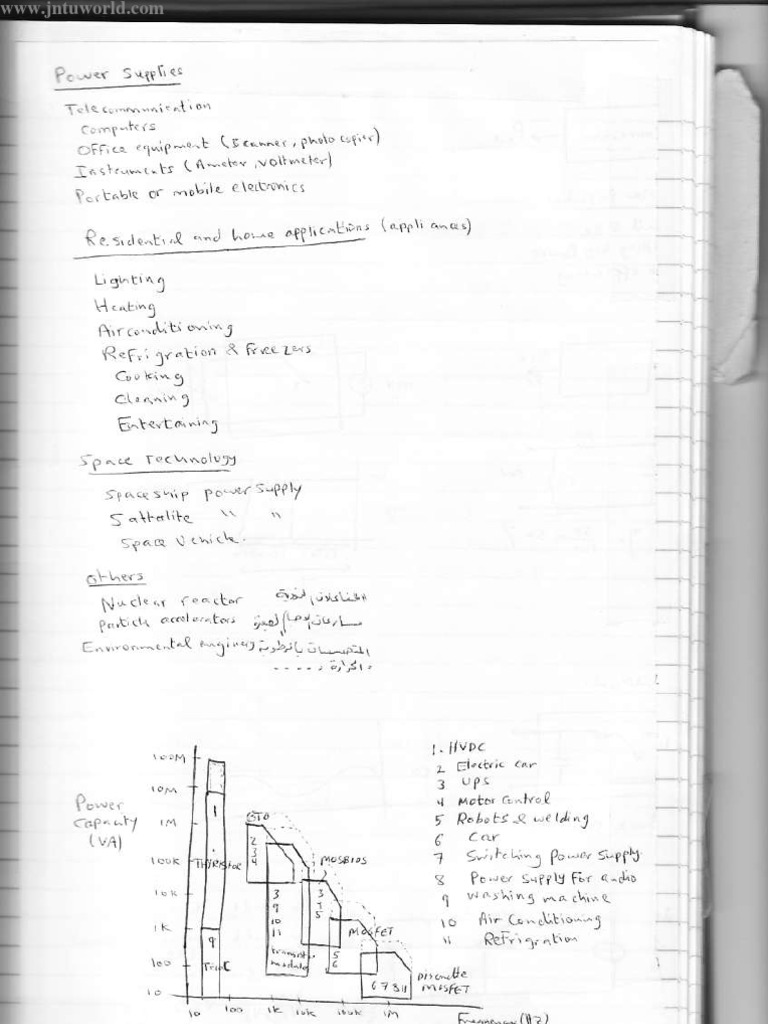 www.jntuworld.com
Power Supplies
Telecommunication
Computers
Office equipment (Scanner, photo copier)
Instruments (Ameter, voltmeter)
Portable or mobile electronics
Residential and home applications (appliances)
Lighting
Heating
Airconditioning
Refrigration & Freezers
Cooking
Cleaning
Entertaining
Space Technology
Spaceship power supply
Sattalite " "
Space Vehicle.
Others
Nuclear reactor المفاعلات النووية
Particle accelerators
Environmental engineers
100M
10M
1M
100K
10K
1K
100
10
Power
Capacity
(VA)
1
THYRISTOR
9
GTO
2
3
4
MOSBIOS
3
9
10
11
3
7
5
MOSFET
5
6
6 7 8 11
Discrette
MOSFET
10 100 1K 10K 100K 1M
Frequency (HZ)
1. HVDC
2 Electric car
3 UPS
4 Motor Control
5 Robots & welding
6 Car
7 Switching Power Supply
8 Power Supply For audio
9 Washing machine
10 Air Conditioning
11 Refrigration